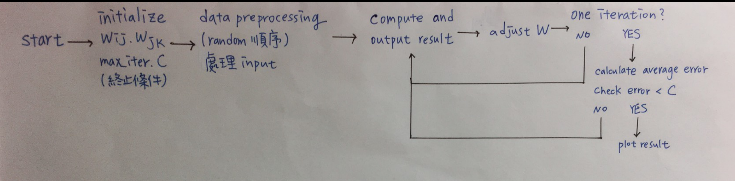 start
initialize
Wij. Wjk
max iter. C
(終止條件)
data preprocessing
(random 順序)
處理 input
compute and
output result
adjust W
one iteration?
NO YES
calculate average error
check error < C
NO YES
plot result